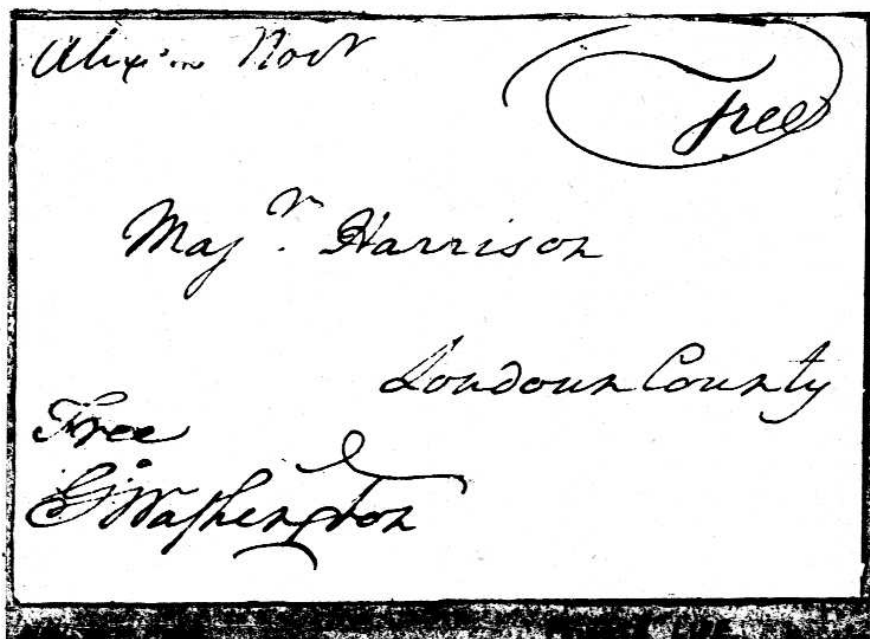 Alexa Nov
Free
Majr. Harrison
Loudoun County
Free
GWashington